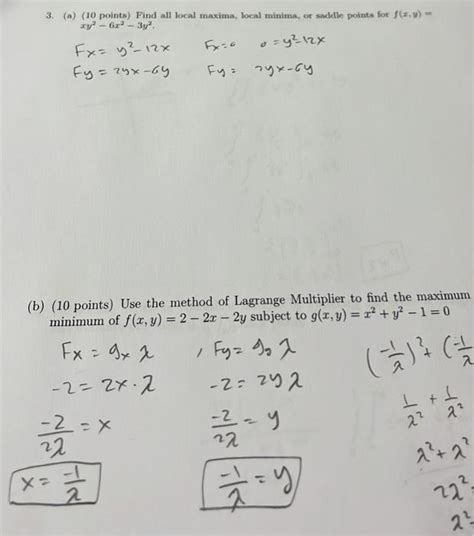 3. (a) (10 points) Find all local maxima, local minima, or saddle points for f(x, y) =
xy² − 6x² − 3y².
Fx = y² − 12x    Fx = 0    0 = y² − 12x
Fy = 2yx − 6y    Fy =    2yx − 6y
(b) (10 points) Use the method of Lagrange Multiplier to find the maximum
minimum of f(x, y) = 2 − 2x − 2y subject to g(x, y) = x² + y² − 1 = 0
Fx = gx λ , Fy = gy λ
−2 = 2x · λ    −2 = 2yλ
−2/2λ = x    −2/2λ = y
x = −1/λ    −1/λ = y
(−1/λ)² + (−1/λ
1/λ² + 1/λ²
λ² + λ²
2λ² =
λ² =